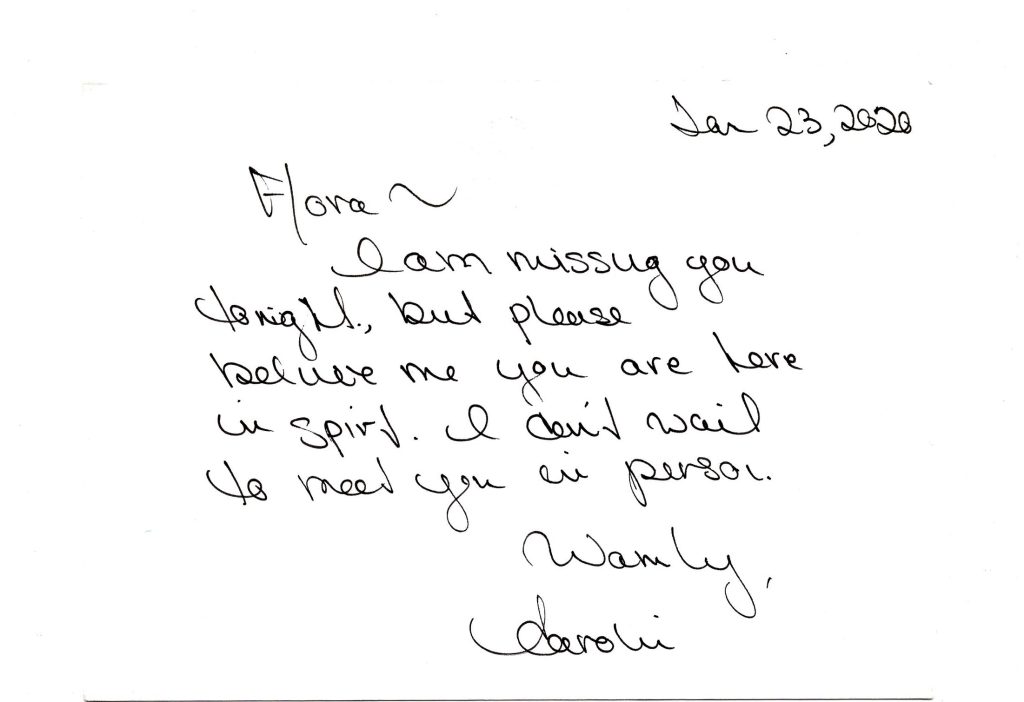 Jan 23, 2020
Flora ~
I am missing you
tonight, but please
believe me you are here
in spirit. I can't wait
to meet you in person.
Warmly,